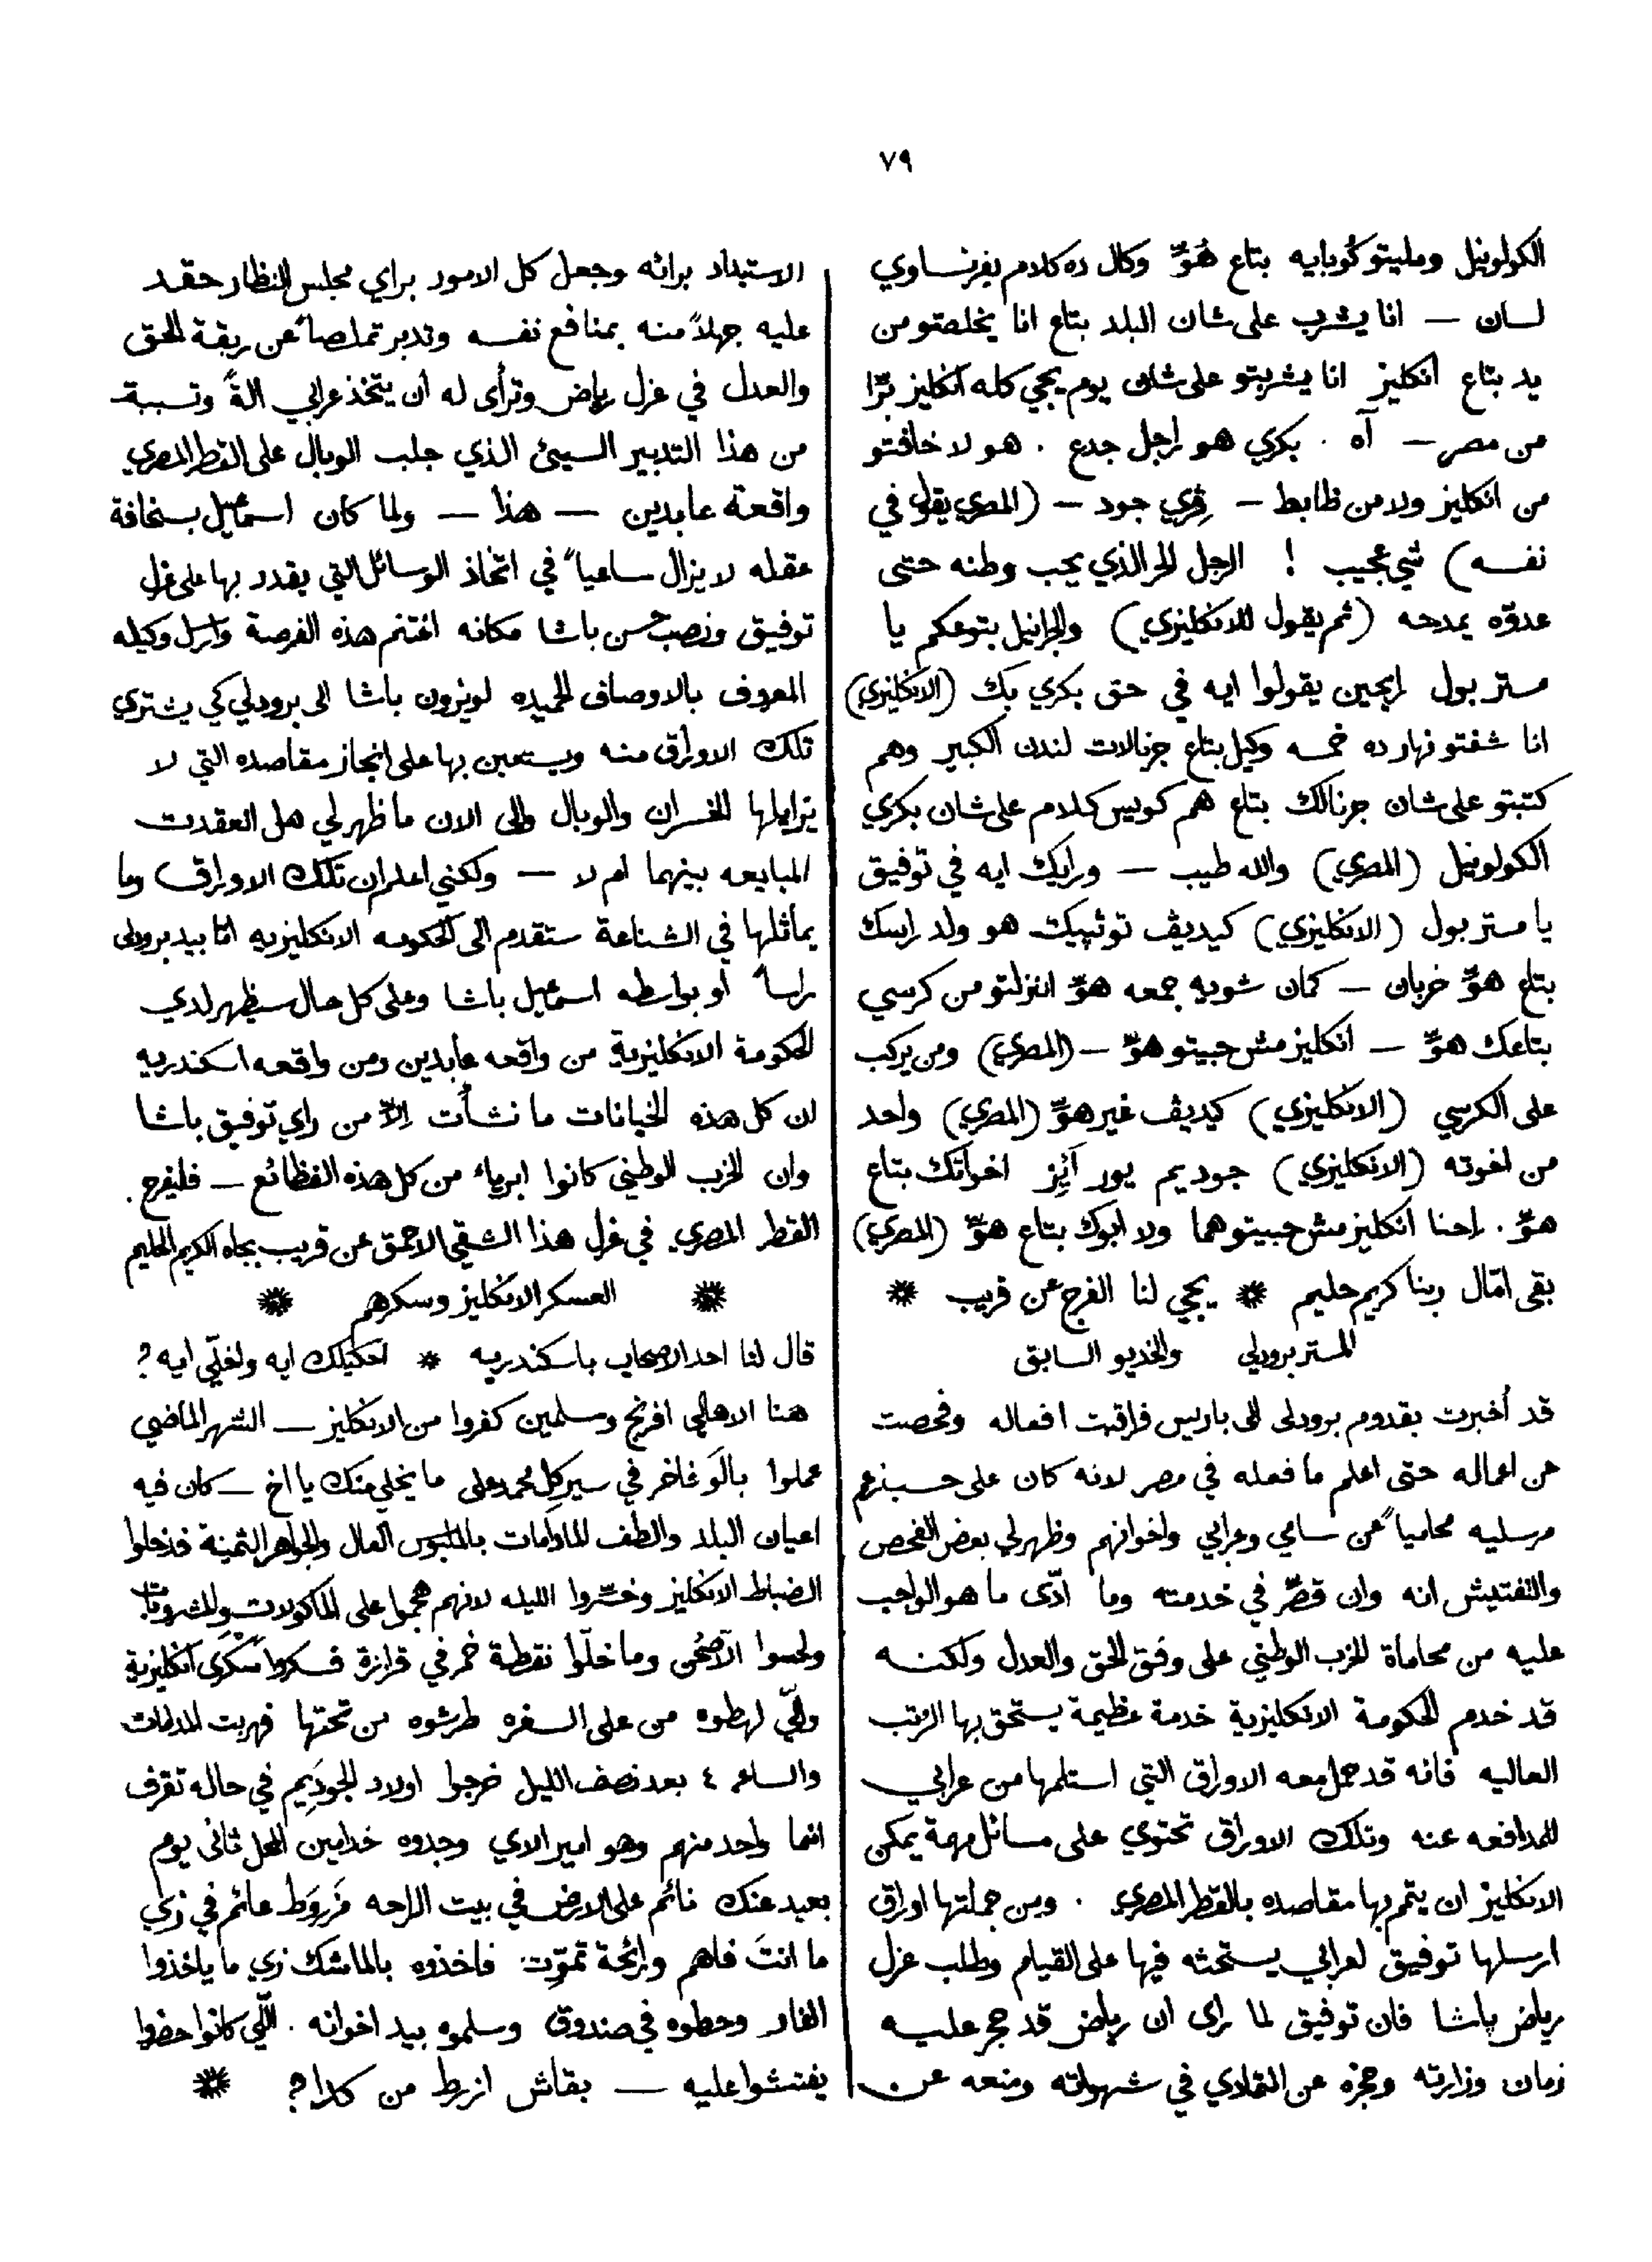 ٧٩
الكولونيل ومليتو كُوبايه بتاع هُوِّ وكال ده كلام بفرنساوي
لسان — انا يشرب على شان البلد بتاع انا يخلصتو من
يد بتاع انكليز انا يشربتو على شان يوم يجي كله انكليز برّا
من مصر — آه . بكري هو راجل جدع . هو لا خافتو
من انكليز ولا من ظابط — ڤري جود — (المصري يقول في
نفسه) شي عجيب ! الرجل الحر الذي يحب وطنه حتى
عدوّه يمدحه (ثم يقول للانكليزي) والجرانيل بتوعكم يا
مستر بول رايحين يقولوا ايه في حق بكري بك (الانكليزي)
انا شفتو نهار ده خمسه وكيل بتاع جرنالات لندن الكبير وهم
كتبتو على شان جرنالك بتاع هم كويس كلام على شان بكري
الكولونيل (المصري) والله طيب — ورايك ايه في توفيق
يا مستر بول (الانكليزي) كيديڤ توئپيك هو ولد راسك
بتاع هوِّ خربان — كمان شويه جمعه هوِّ انزلتو من كرسي
بتاعك هوِّ — انكليز مش حبيتو هوِّ — (المصري) ومن يركب
على الكرسي (الانكليزي) كيديڤ غير هوِّ (المصري) واحد
من اخوته (الانكليزي) جوديم يور آيِز اخواتك بتاع
هوِّ . احنا انكليز مش حبيتو هما ولا ابوك بتاع هوِّ (المصري)
بقى امّال ربنا كريم حليم * يجي لنا الفرج عن قريب *
المستر برودلي والخديو السابق
قد أخبرت بقدوم برودلى الى باريس فراقبت افعاله وفحصت
عن اعماله حتى اعلم ما فعله في مصر لانه كان على حسب زعم
مرسليه محامياً عن سامي وعرابي واخوانهم وظهر لي بعض الفحص
والتفتيش انه وان قصّر في خدمته وما ادّى ما هو الواجب
عليه من محاماة الحزب الوطني على وفق الحق والعدل ولكنه
قد خدم الحكومة الانكليزية خدمة عظيمة يستحق بها الرتب
العاليه فانه قد حمل معه الاوراق التي استلمها من عرابي
للمدافعه عنه وتلك الاوراق تحتوي على مسائل مهمة يمكن
الانكليز ان يتمم بها مقاصده بالقطر المصري . ومن جملتها اوراق
ارسلها توفيق لعرابي يستحثه فيها على القيام وطلب عزل
رياض پاشا فان توفيق لما راى ان رياض قد حجر عليه
زمان وزارته وحجزه عن التمادي في شهواته ومنعه عن
الاستبداد برائه وجعل كل الامور براي مجلس النظار حقد
عليه جهلاً منه بمنافع نفسه وتدبر تملصاً عن ربقة الحق
والعدل في عزل رياض وترأى له ان يتخذ عرابي الةً وتسببت
من هذا التدبير السيئ الذي جلب الوبال على القطر المصري
واقعة عابدين — هذا — ولما كان اسمعيل بسخافة
عقله لا يزال ساعياً في اتخاذ الوسائل التي يقدر بها على عزل
توفيق ونصب حسن باشا مكانه اغتنم هذه الفرصة وارسل وكيله
المعروف بالاوصاف الحميده لويزون باشا الى برودلي كي يشتري
تلك الاوراق منه ويستعين بها على انجاز مقاصده التي لا
يزايلها الخسران والوبال والى الان ما ظهر لي هل انعقدت
المبايعه بينهما ام لا — ولكني اعلم ان تلك الاوراق وما
يماثلها في الشناعة ستقدم الى الحكومه الانكليزيه اما بيد برودلى
راساً او بواسطه اسمعيل باشا وعلى كل حال سيظهر لدي
الحكومة الانكليزية من واقعه عابدين ومن واقعه اسكندريه
ان كل هذه الخيانات ما نشأت إلاّ من راي توفيق باشا
وان الحزب الوطني كانوا ابرياء من كل هذه الفظائع — فليفرح .
القطر المصري في عزل هذا الشقي الاحمق عن قريب بجاه الكريم الحليم
* العسكر الانكليز وسكرهم *
قال لنا احد الاصحاب باسكندريه * احكيلك ايه واخلّي ايه ؟
هنا الاهالي افرنج ومسلمين كفروا من الانكليز — الشهر الماضي
عملوا بالَو فاخر في سيركِل محمد على ما يخلي منك يا اخ — كان فيه
اعيان البلد والطف المادامات بالملبوس العال والجواهر الثمينة فدخلوا
الضباط الانكليز وخسّروا الليله لانهم هجموا على الماكولات والمشروبات
ولحسوا الاصحُن وما خلّوا نقطة خمر في قزازة فسكروا سكرى انكليزية
واللّي لهطوه من على السفره طرشوه من تحتها فهربت المدامات
والساعه ٤ بعد نصف الليل خرجوا اولاد الجوديم في حاله تقرف
انما واحد منهم وهو امير الاي وجدوه خدامين المحل ثانى يوم
بعيد عنك نائم على الارض في بيت الراحه مزروط عائم في زي
ما انتَ فاهم ورائحة تموّت فاخذوه بالماشك زي ما ياخذوا
الفار وحطوه في صندوق وسلموه بيد اخوانه . اللّي كانوا حضروا
يفتشوا عليه — بقاش ازرط من كدا ؟ *